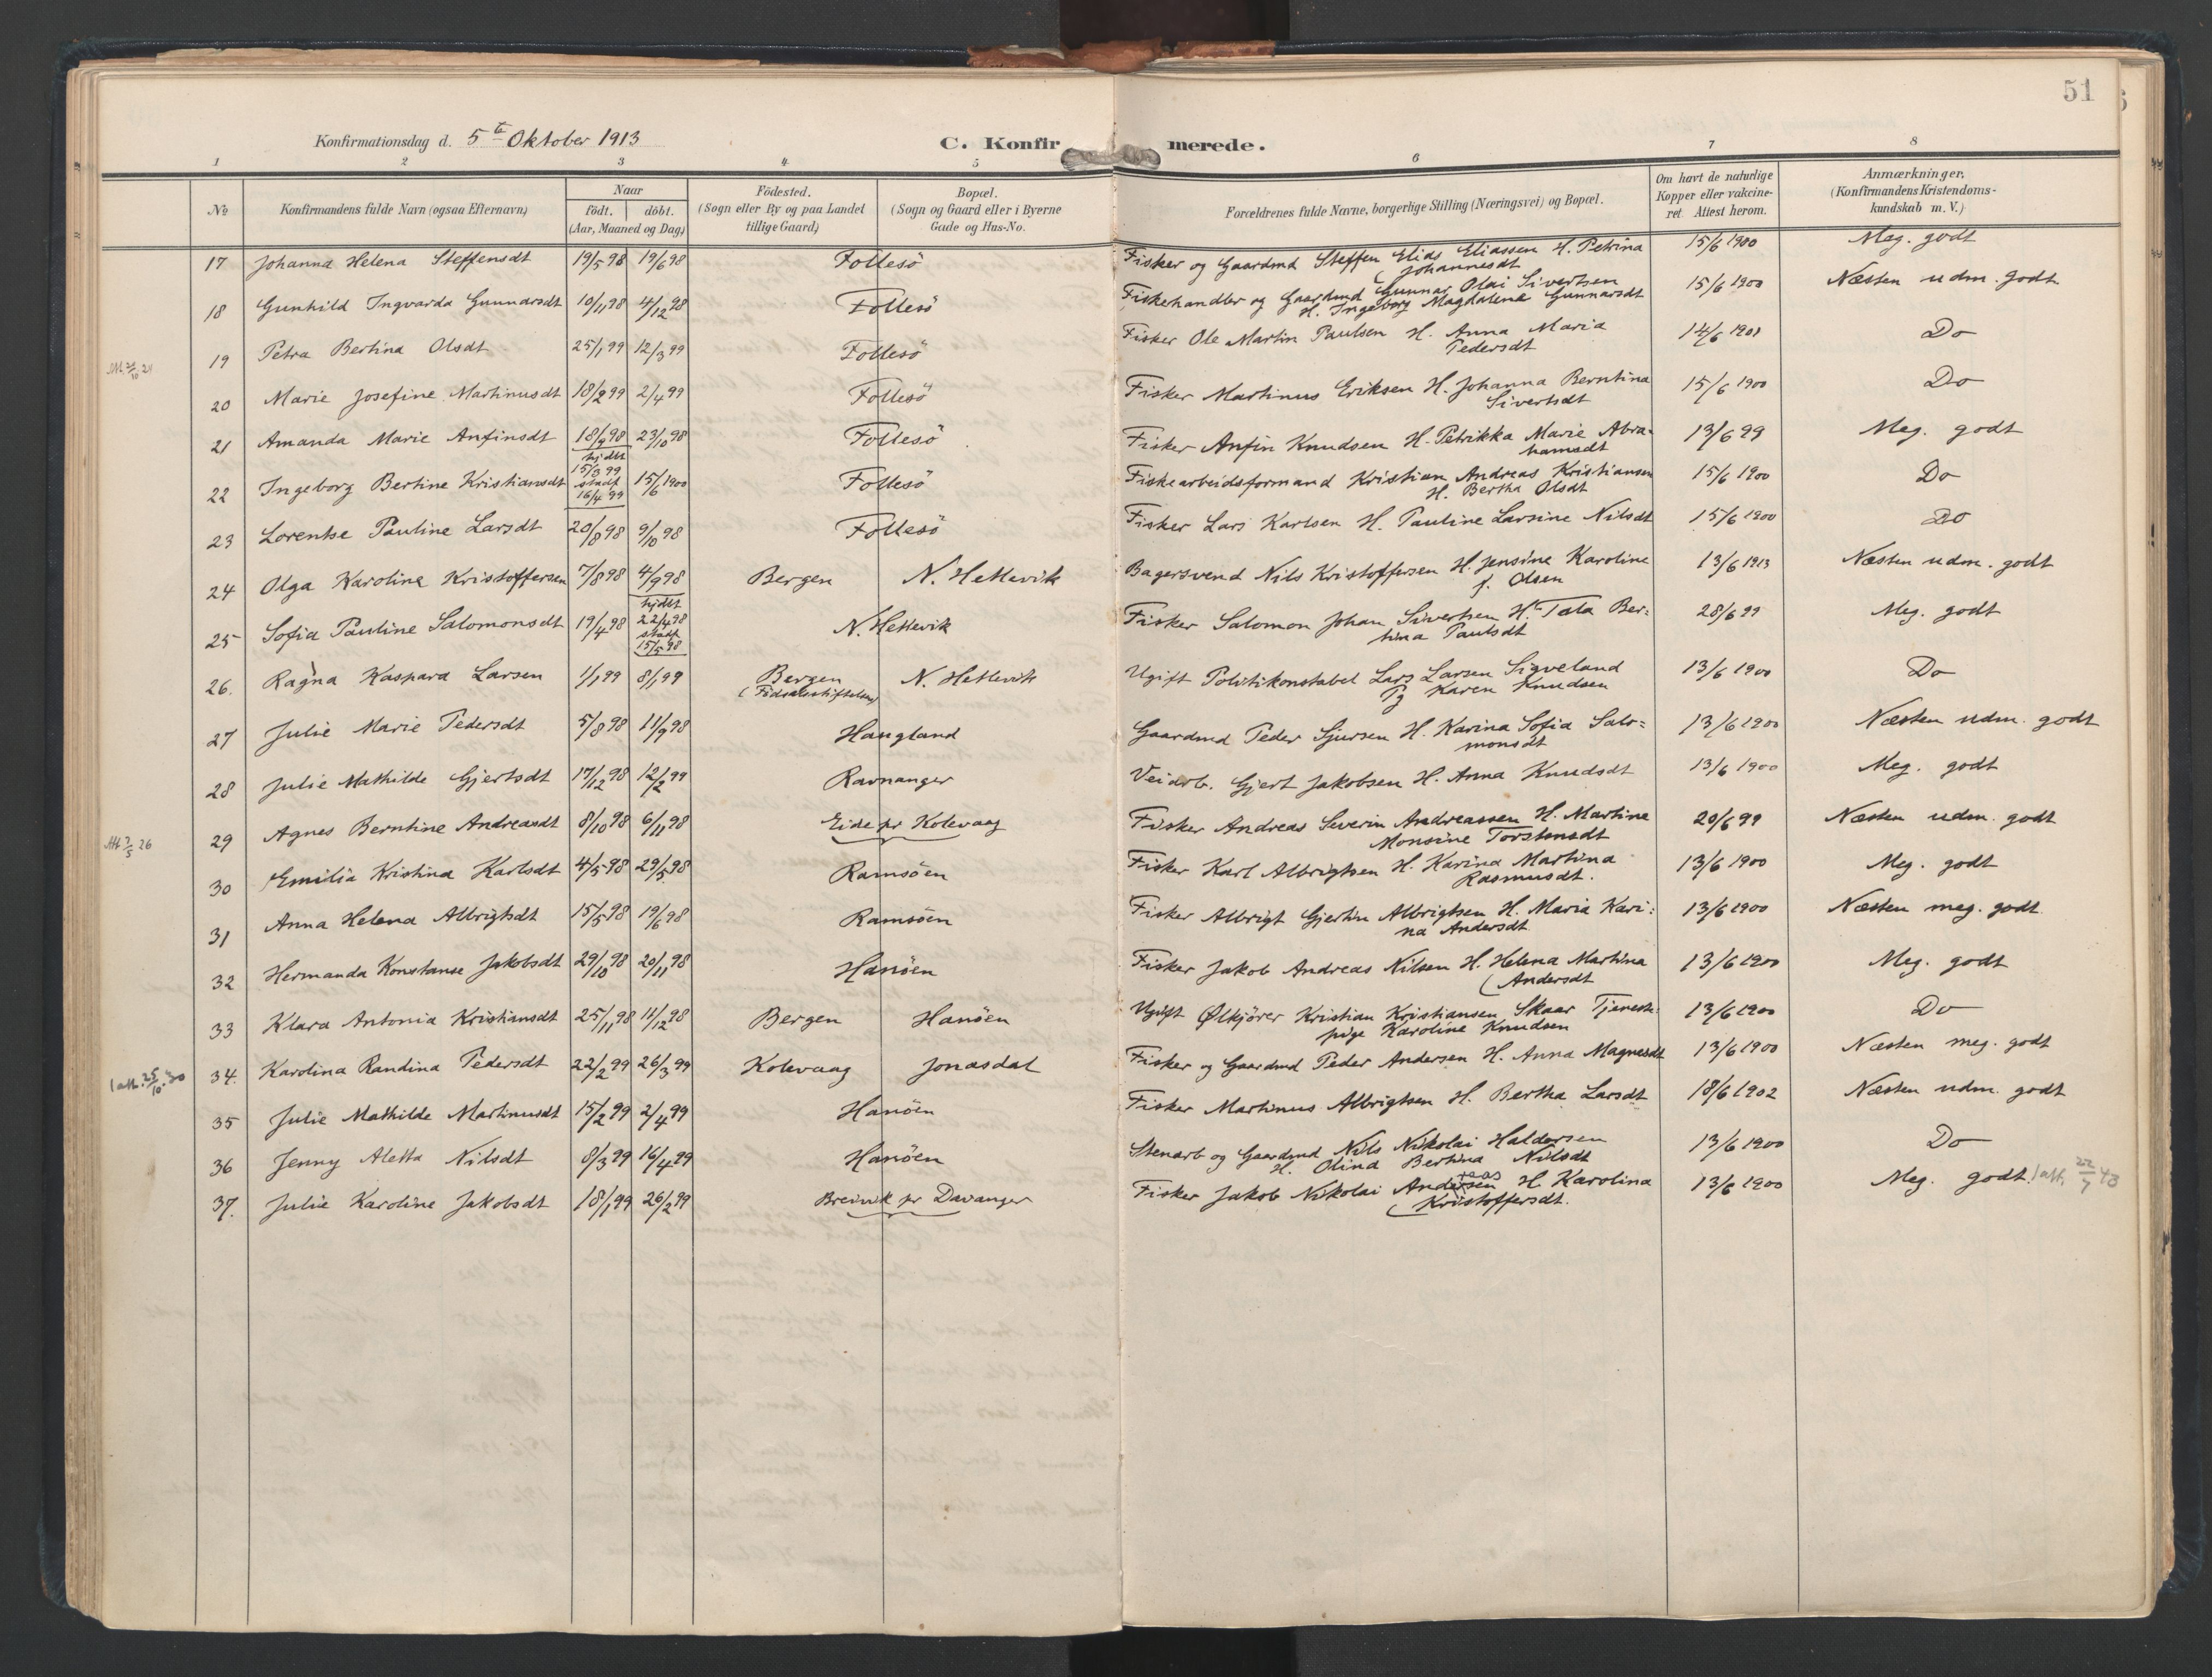 51
Konfirmationsdag d. 5te Oktober 1913
C. Konfirmerede.
1 2 3 4 5 6 7 8
No
Konfirmandens fulde Navn (ogsaa Efternavn)
Naar
födt. | döbt.
(Aar, Maaned og Dag)
Födested.
(Sogn eller By og paa Landet
tillige Gaard)
Bopæl.
(Sogn og Gaard eller i Byerne
Gade og Hus-No.
Forældrenes fulde Navne, borgerlige Stilling (Næringsvei) og Bopæl.
Om havt de naturlige
Kopper eller vakcine-
ret. Attest herom.
Anmærkninger.
(Konfirmandens Kristendoms-
kundskab m. V.)
17 Johanna Helena Steffensdt 19/5 98 19/6 98 Follesö Fisker og Gaardmd Steffen Elias Eliassen H. Petrina 15/6 1900 Meg. godt
Johannesdt
18 Gunhild Ingvarda Gunnarsdt 10/11 98 4/12 98 Follesö Fiskehandler og Gaardmd Gunnar Olai Sivertsen 15/6 1900 Næsten udm. godt
H. Ingeborg Magdalena Gunnarsdt
19 Petra Bertina Olsdt 25/1 99 12/3 99 Follesö Fisker Ole Martin Paulsen H. Anna Maria 14/6 1901 Do
Pedersdt
20 Marie Josefine Martinusdt 18/2 99 2/4 99 Follesö Fisker Martinus Eriksen H. Johanna Berntina 15/6 1900 Do
Sivertsdt
21 Amanda Marie Anfinsdt 18/9 98 23/10 98 Follesö Fisker Anfin Knudsen H. Petrikka Marie Abra- 13/6 99 Meg. godt
hamsdt
hjdbt
15/3 99
stadf
16/4 99
22 Ingeborg Bertine Kristiansdt 15/6 1900 Follesö Fiskearbeidsformand Kristian Andreas Kristiansen 15/6 1900 Do
H. Bertha Olsdt
23 Lorentse Pauline Larsdt 20/8 98 9/10 98 Follesö Fisker Lars Karlsen H. Pauline Larsine Nilsdt 15/6 1900 Do
24 Olga Karoline Kristoffersen 7/8 98 4/9 98 Bergen N. Hettevik Bagersvend Nils Kristoffersen H. Jensine Karoline 13/6 1913 Næsten udm. godt
f. Olsen
hjdbt
25 Sofia Pauline Salomonsdt 19/4 98 22/4 98 N. Hettevik Fisker Salomon Johan Sivertsen H. Tala Ber- 28/6 99 Meg. godt
stadf
15/5 98
tina Paulsdt
26. Ragna Kaspara Larsen 1/1 99 8/1 99 Bergen N. Hettevik Ugift Politikonstabel Lars Larsen Sigveland 13/6 1900 Do
(Födselsstiftelsen)
Pg Karen Knudsen
27 Julie Marie Pedersdt 5/8 98 11/9 98 Haugland Gaardmd Peder Sjursen H. Karina Sofia Salo- 13/6 1900 Næsten udm. godt
monsdt
28 Julie Mathilde Gjertsdt 17/12 98 12/2 99 Ravnanger Veiarb. Gjert Jakobsen H. Anna Knudsdt 13/6 1900 Meg. godt
29 Agnes Berntine Andreasdt 8/10 98 6/11 98 Eide pr Kolevaag Fisker Andreas Severin Andreassen H. Martine 20/6 99 Næsten udm. godt
Monsine Torstensdt
30 Emilia Kristina Karlsdt 4/5 98 29/5 98 Ramsöen Fisker Karl Albrigtsen H. Karina Martina 13/6 1900 Meg. godt
Rasmusdt.
31 Anna Helena Albrigtsdt 15/5 98 19/6 98 Ramsöen Fisker Albrigt Gjertin Albrigtsen H. Maria Kari- 13/6 1900 Næsten meg. godt
na Andersdt
32 Hermanda Konstanse Jakobsdt 29/10 98 20/11 98 Hanöen Fisker Jakob Andreas Nilsen H. Helena Martina 13/6 1900 Meg. godt
Andersdt
33 Klara Antonia Kristiansdt 25/11 98 11/12 98 Bergen Hanöen Ugift Ølkjörer Kristian Kristiansen Skaar Tjeneste- 13/6 1900 Do
pige Karoline Knudsen
1 att. 25/10.30 34. Karolina Randina Pedersdt 22/2 99 26/3 99 Kolevaag Jonasdal Fisker og Gaardmd Peder Andersen H. Anna Magnesdt 13/6 1900 Næsten meg. godt
35 Julie Mathilde Martinusdt 15/2 99 2/4 99 Hanöen Fisker Martinus Albrigtsen H. Bertha Larsdt 18/6 1902 Næsten udm. godt
36 Jenny Aletta Nilsdt 8/3 99 16/4 99 Hanöen Stenarb og Gaardmd Nils Nikolai Haldorsen 13/6 1900 Do
H. Olina Bertina Nilsdt
37. Julie Karoline Jakobsdt 18/1 99 26/2 99 Breivik pr Davanger Fisker Jakob Nikolai Andersen H Karolina 13/6 1900 Meg. godt. 1 att. 22/7 43
Kristoffersdt.